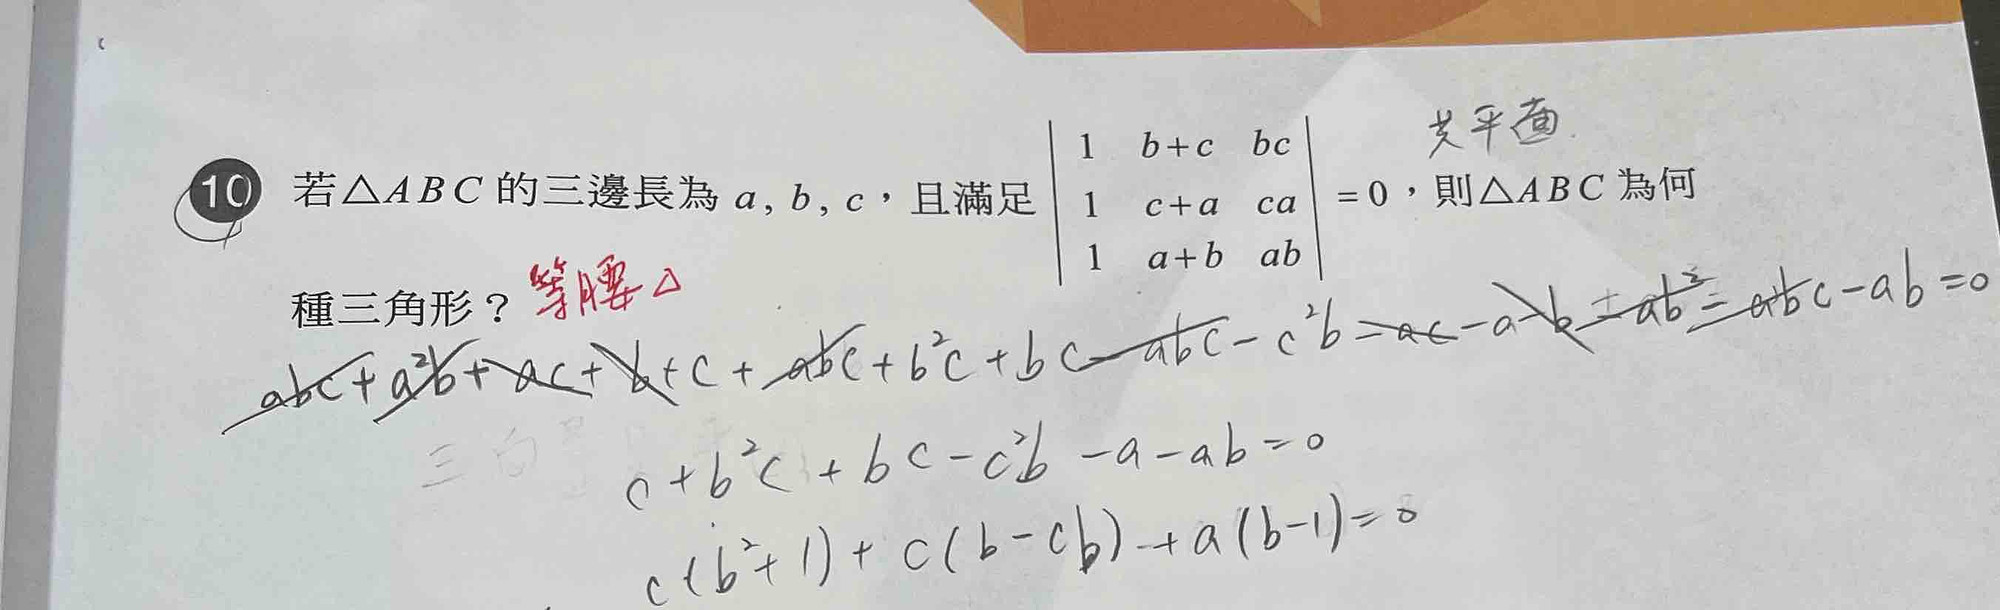 共平面
10 若△ABC的三邊長為 a, b, c，且滿足 | 1 b+c bc | = 0，則△ABC為何
| 1 c+a ca |
| 1 a+b ab |
種三角形？ 等腰△
abc+a²b+ac+b+c+abc+b²c+bc-abc-c²b-ac-a-b-ab²-abc-ab=0
c+b²c+bc-c²b-a-ab=0
c(b²+1)+c(b-cb)+a(b-1)=0